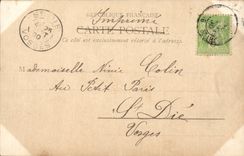 RÉPUBLIQUE FRANÇAISE
Imprimé
CARTE POSTALE
Ce côté est exclusivement réservé à l'adresse
Mademoiselle Ninie Colin
Au Petit Paris
St Dié
Vosges